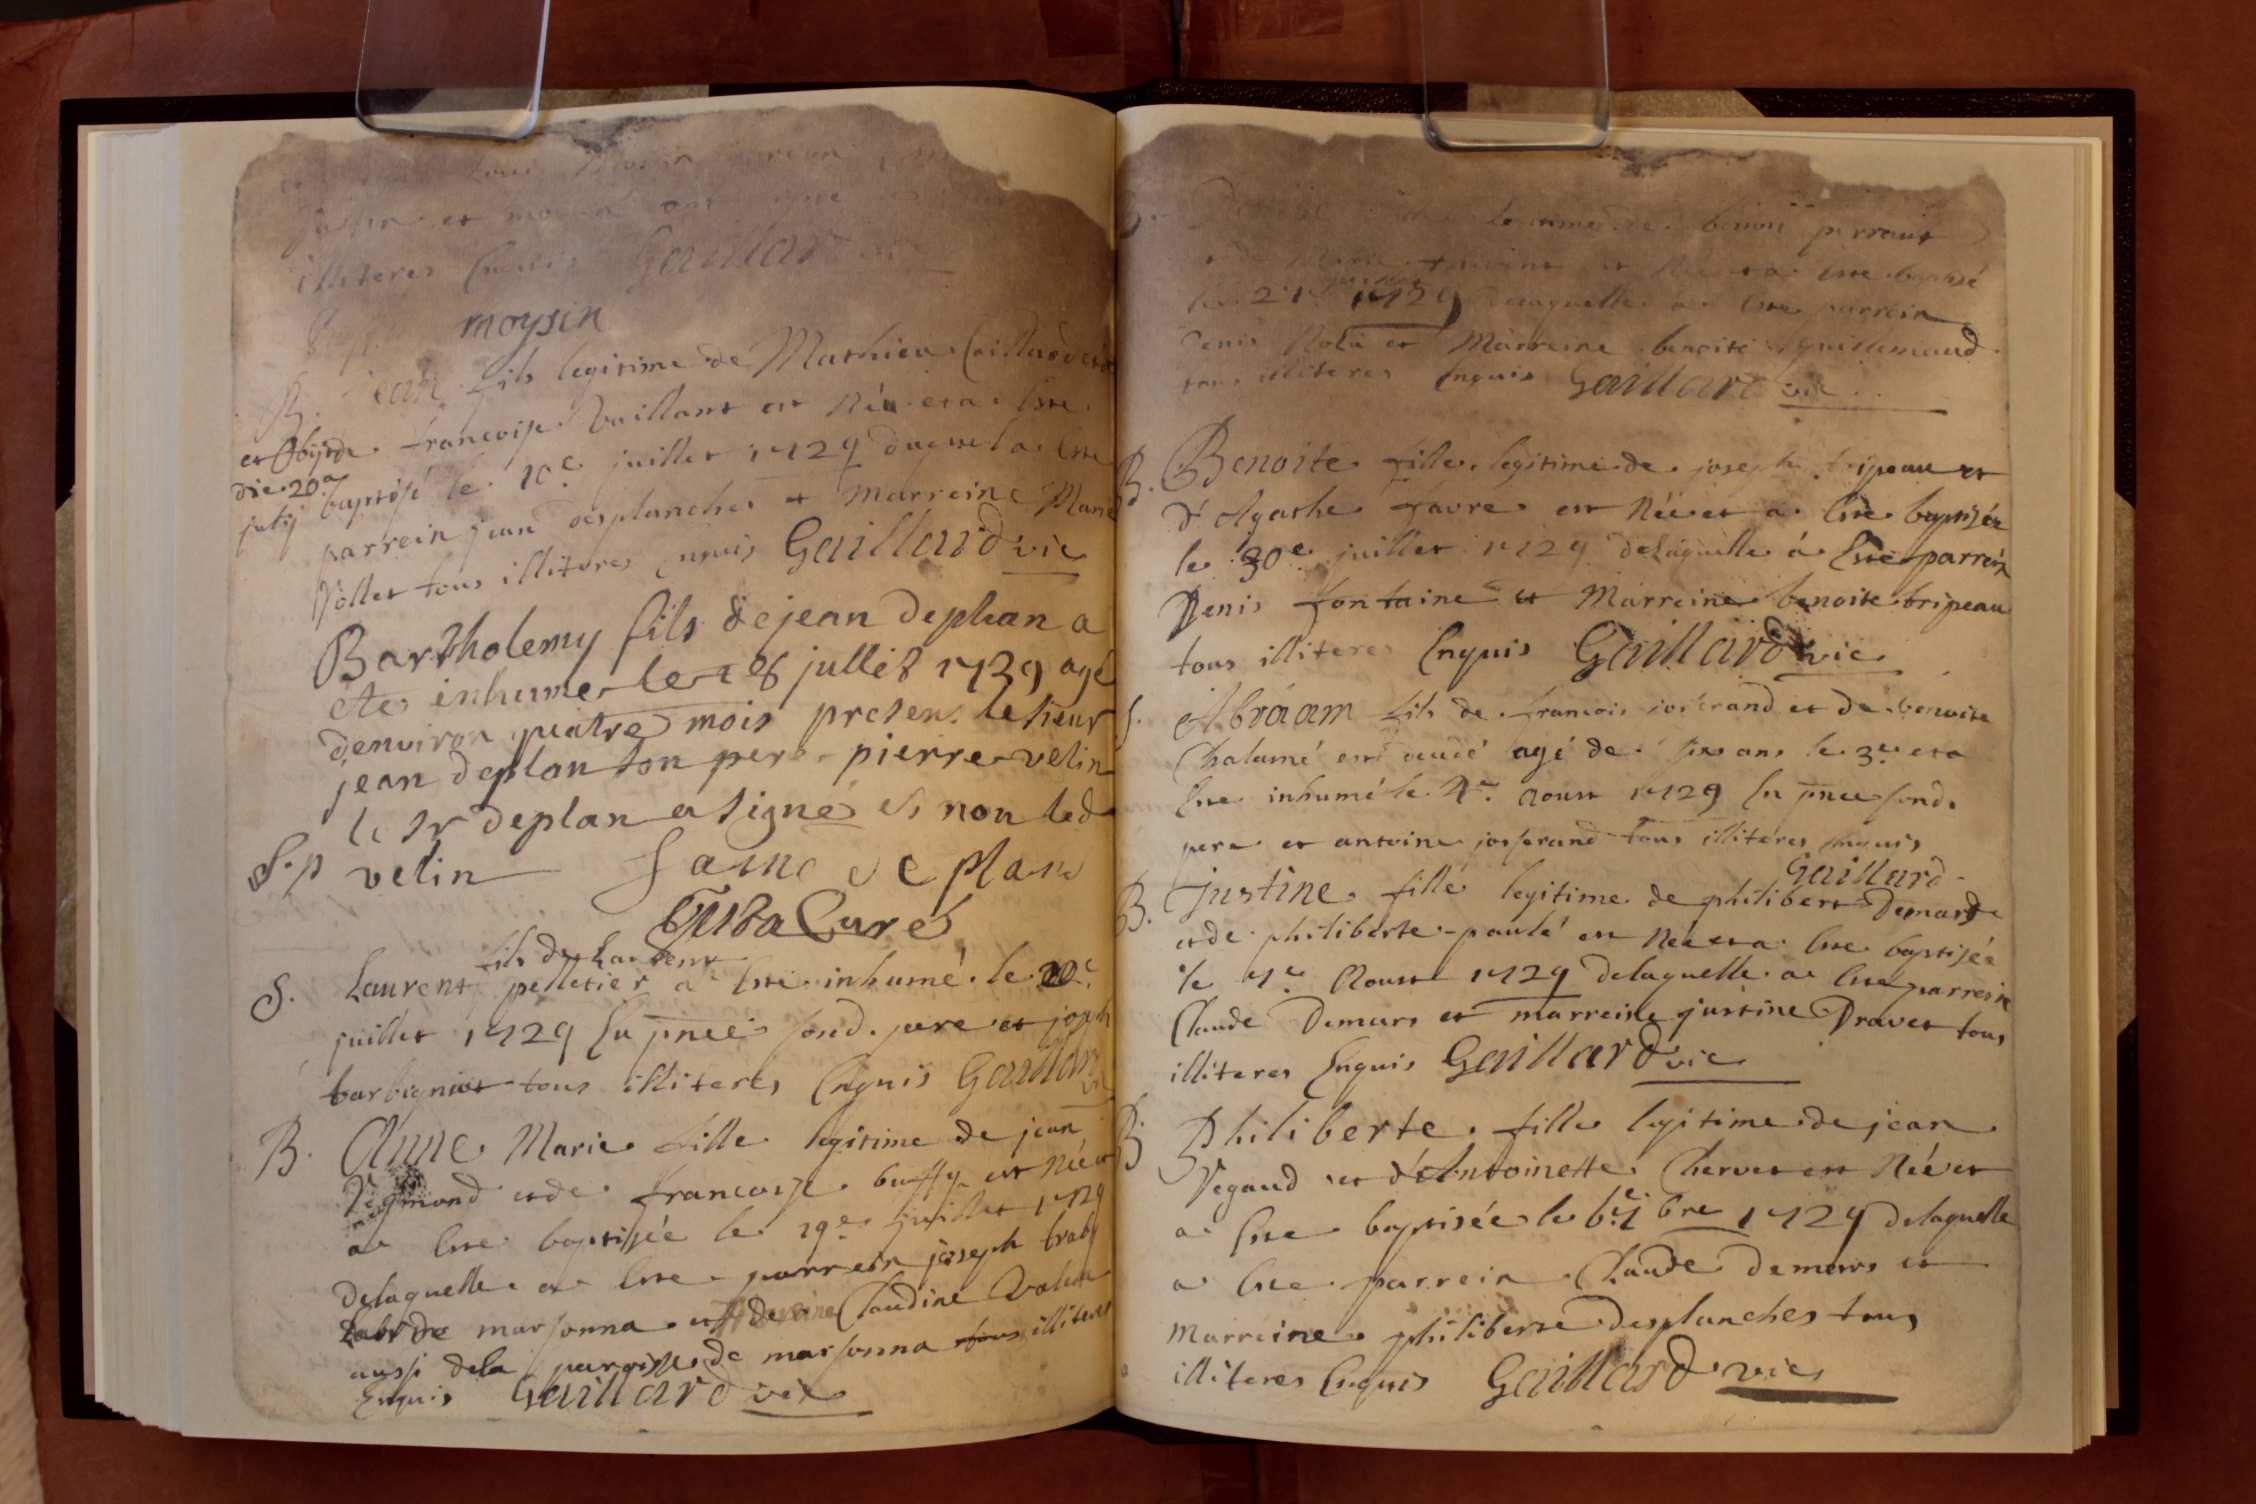 et moysin ont
illiteres Enquis Gaillard vic
moysin
B. jean fils legitime de Mathieu
et obijt de francoise Vaillant est Née et a Esté
die 20a baptisé le 10e juillet 1729 duquel a Esté
julij parrein jean desplanches et Marreine Marie
Vollet tous illiteres Enquis Gaillard vic
Bartholemy fils de jean deplan a
ete inhume le 18 jullet 1729 agé
denviron quatre mois presens le sieur
jean deplan son pere pierre velin
le sr deplan a signé et non led
S.p velin de plan
Curé
fils de Laurent
S. Laurent pelletier a Esté inhumé le 20e
juillet 1729 En pnce sond. pere et joseph
barbigniot tous illiteres Enquis Gaillard
vic
B. Anne Marie fille legitime de jean
et de francoise buffy est Née et
a Esté baptisée le 19e juillet 1729
delaquelle a Esté parrein joseph
marsonna et de Claudine
aussi dela paroisse de marsonna tous illiteres
Enquis Gaillard vic
legitime de benoit perraut
est Née et a Esté baptisé
le 21 juillet 1729 duquelle a Esté parrein
Denis et Marreine benoite guillemaud
tous illiteres Enquis Gaillard vic
B. Benoite fille legitime de joseph tripeau et
d'Agathe favre est Née et a Esté baptisée
le 30e juillet 1729 delaquelle á Esté parrein
Denis fontaine et Marreine benoite tripeau
tous illiteres Enquis Gaillard vic
S. Abraam fils de francois josserand et de benoite
Chalumé est decedé agé de six ans le 3e et a
Esté inhumé le 4e Aoust 1729 En pnce sond.
pere et antoine josserand tous illiteres Enquis
Gaillard
B. justine fille legitime de philibert Demars
et de philiberte paulé est Née et a Esté baptisée
le 7e Aoust 1729 delaquelle a Esté parrein
Claude Demars et marreine justine Dravet tous
illiteres Enquis Gaillard vic
B. Philiberte fille legitime de jean
Vegaud et d'Antoinette Chervet est Née et
a Esté baptisée le 6e 7bre 1729 delaquelle
a Esté parrein Claude Demars et
Marreine philiberte Desplanches tous
illiteres Enquis Gaillard vic